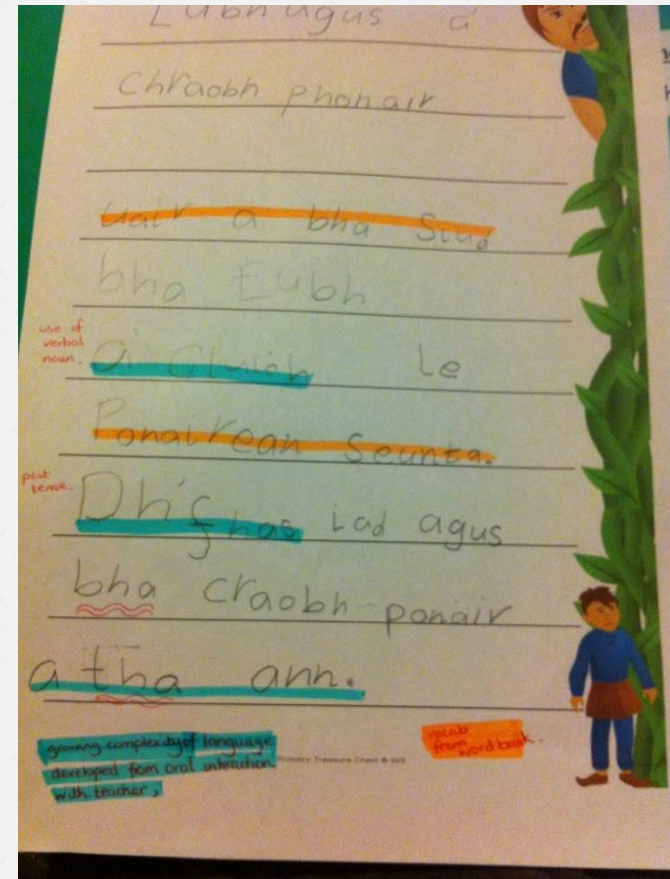 agus a'
Chraobh phonair
uair a bha Siud
bha Eubh
use of
verbal
noun.
a' Cluich le
Ponairean Seunta.
past
tense.
Dh'fhas iad agus
bha craobh ponair
a tha ann.
growing complexity of language
developed from oral interaction
with teacher,
vocab
from word bank.
Primary Treasure Chest ©